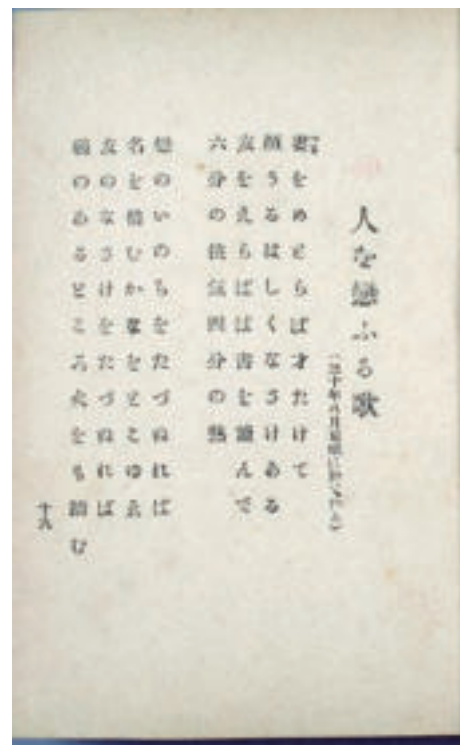 人を戀ふる歌
(三十年八月京城に於て作る)
妻をめとらば才たけて
顔うるはしくなさけある
友をえらばば書を讀んで
六分の俠氣四分の熱
戀のいのちをたづぬれば
名を惜むかなをとこゆゑ
友のなさけをたづぬれば
義のあるところ火をも踏む
十八